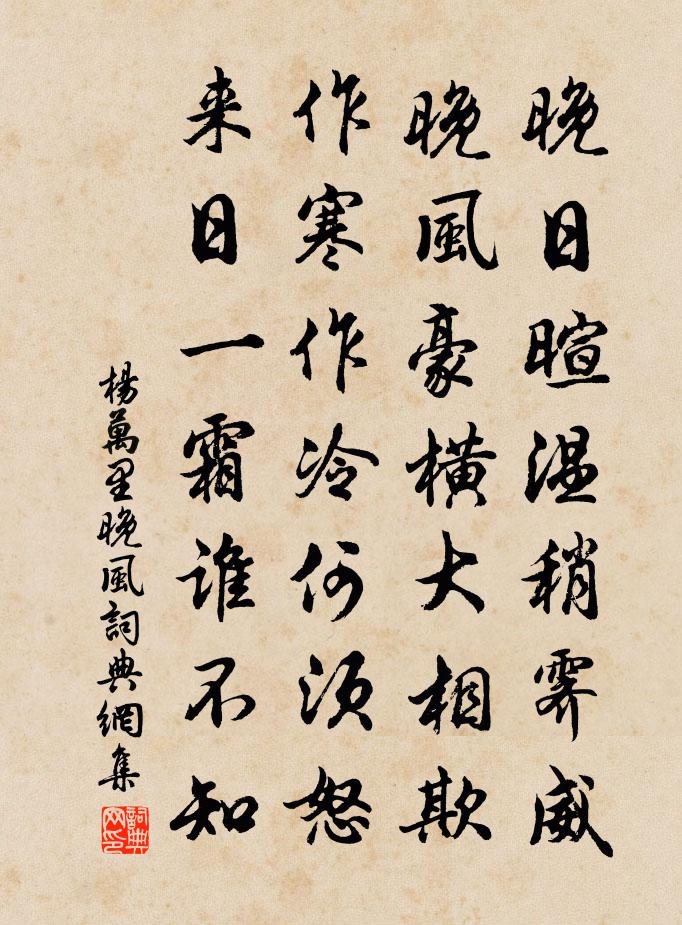 晚日暄温稍霽威
晚風豪橫大相欺
作寒作冷何須怒
来日一霜誰不知
楊萬里晚風詞典網集
詞典网印